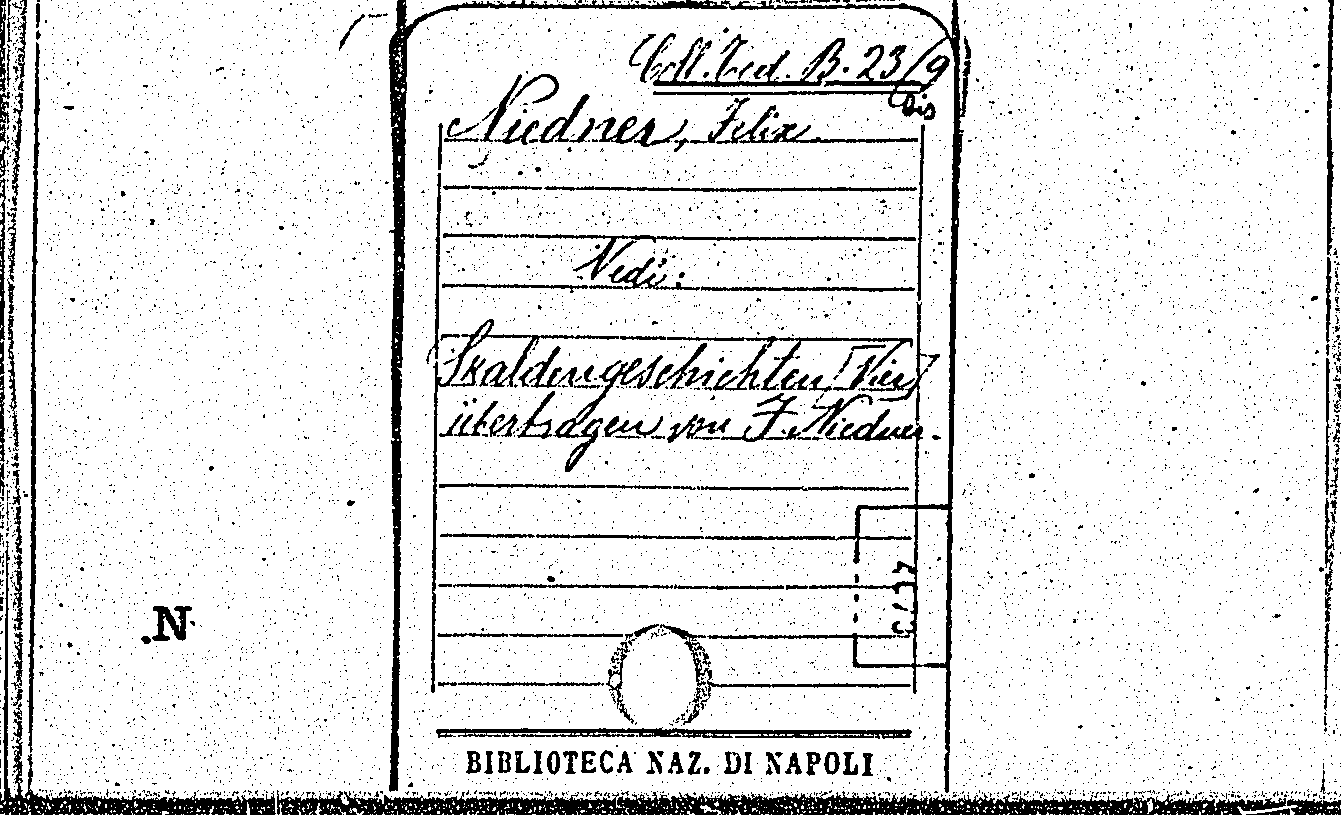 Coll. Ted. B. 23/9
bis
Niedner, Felix
Vedi:
Skaldengeschichten [Vier]
übertragen von F. Niedner.
N
BIBLIOTECA NAZ. DI NAPOLI